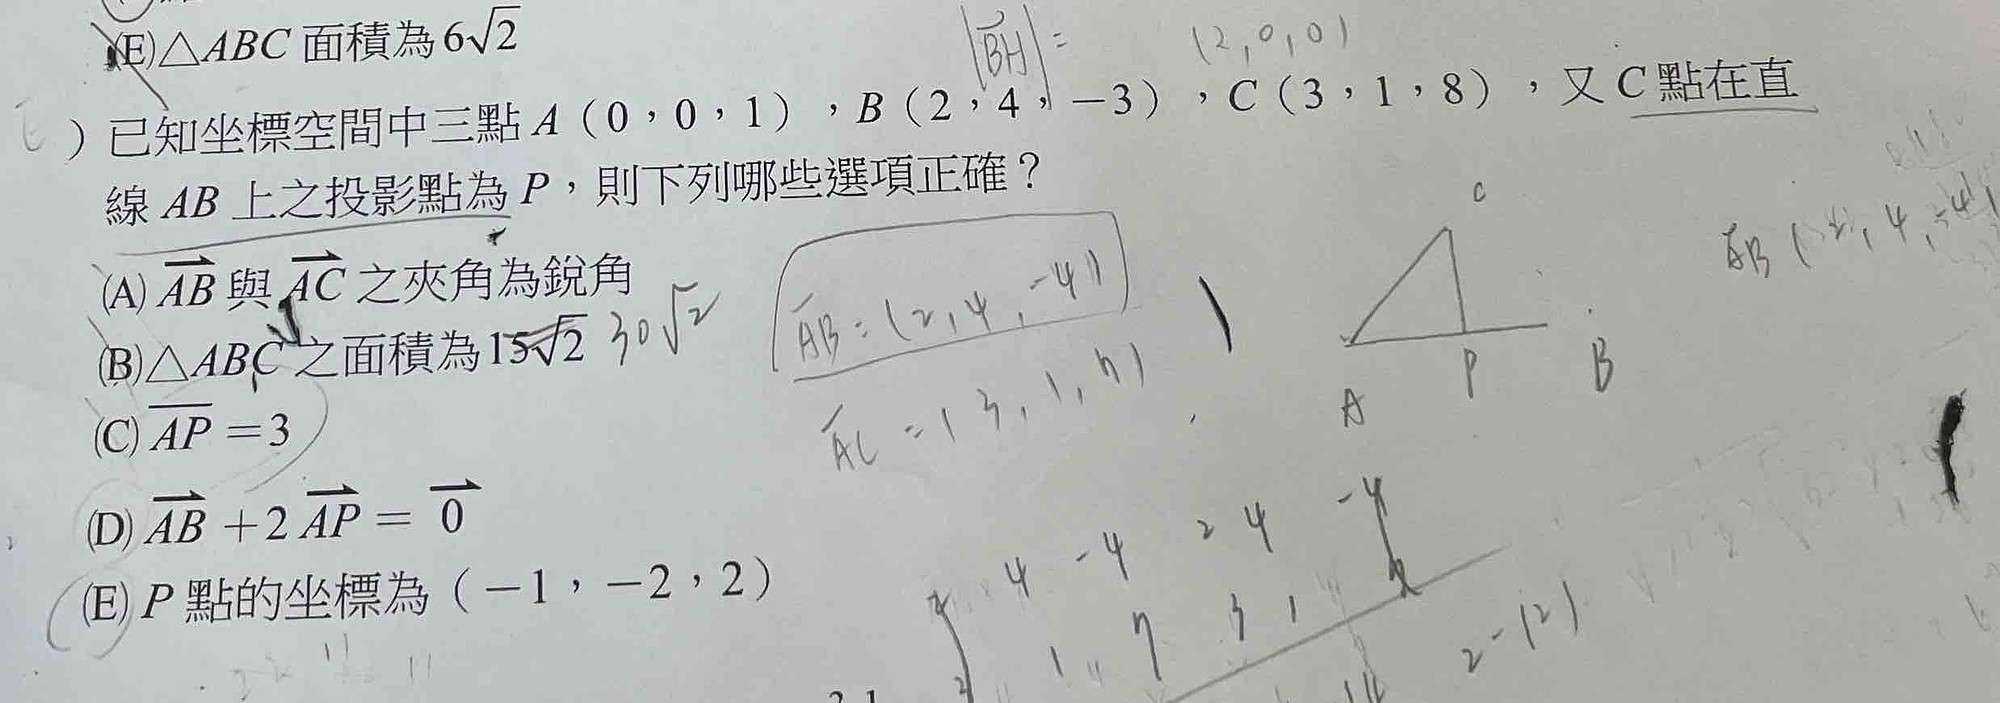 (E)△ABC 面積為 6√2
|BH| =
(2,0,0)
)已知坐標空間中三點 A(0,0,1),B(2,4,−3),C(3,1,8),又 C 點在直
線 AB 上之投影點為 P,則下列哪些選項正確?
(A) AB 與 AC 之夾角為銳角
(B)△ABC 之面積為 15√2 30√2
(C) AP =3
(D) AB +2 AP = 0
(E) P 點的坐標為(−1,−2,2)
AB = (2,4,-4)
AC = (3,1,7)
C
A P B
4 -4 2 4 -4
1 7 3 1
2-12)